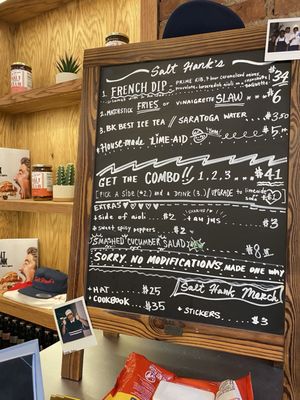 Salt Hank's
1. FRENCH DIP PRIME RIB, 9 hour caramelized onions $34
provolone, horseradish aioli on a baguette
2. MATCHSTICK FRIES or VINAIGRETTE SLAW $6
3. BK BEST ICE TEA / SARATOGA WATER $3.50
+ HOUSE-MADE LIME-AID $5
GET THE COMBO!! 1, 2, 3 ... $41
[PICK A SIDE (#2) AND A DRINK (3)/UPGRADE to limeade $2]
EXTRAS
+ side of aioli $2
+ au jus $3
+ sweet spicy peppers $2
SMASHED CUCUMBER SALAD $8
SORRY, NO MODIFICATIONS, MADE ONE WAY
Salt Hank Merch
+ HAT $25
+ COOKBOOK $35
+ STICKERS $3